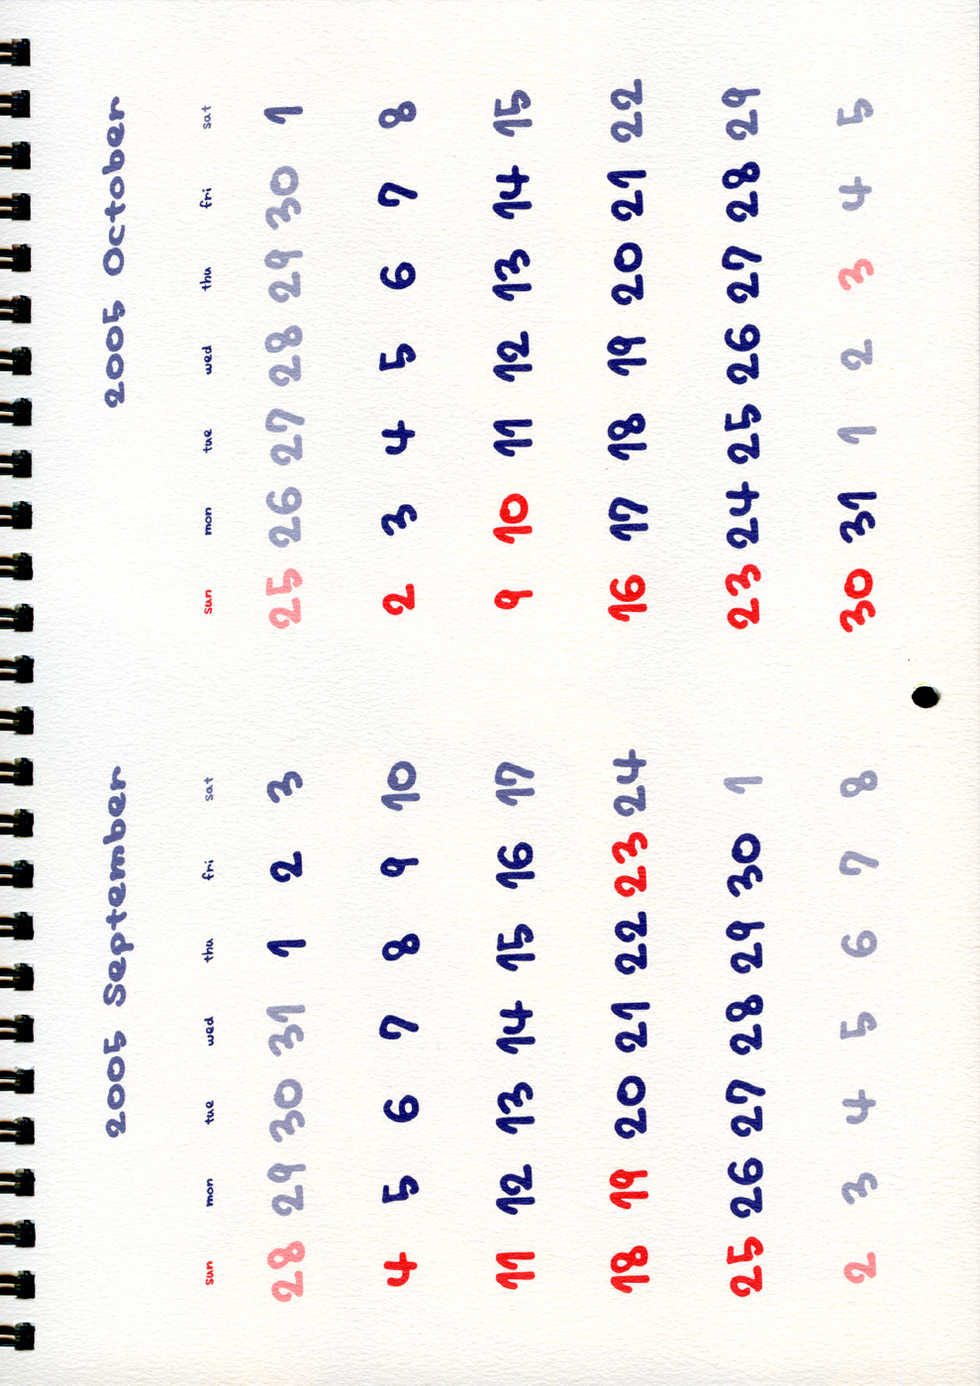 2005 September
sun mon tue wed thu fri sat
28 29 30 31 1 2 3
4 5 6 7 8 9 10
11 12 13 14 15 16 17
18 19 20 21 22 23 24
25 26 27 28 29 30 1
2 3 4 5 6 7 8
2005 October
sun mon tue wed thu fri sat
25 26 27 28 29 30 1
2 3 4 5 6 7 8
9 10 11 12 13 14 15
16 17 18 19 20 21 22
23 24 25 26 27 28 29
30 31 1 2 3 4 5